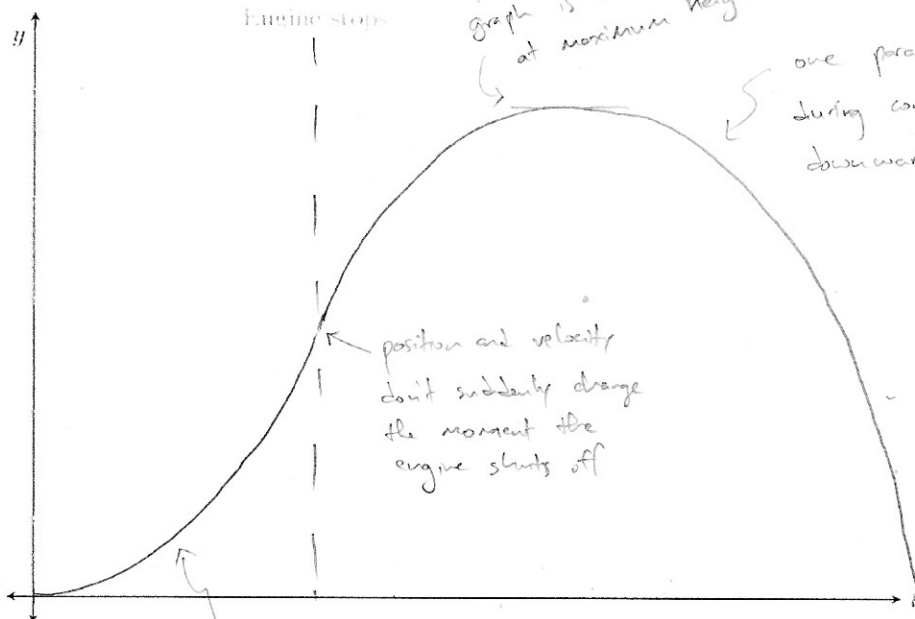 y
Engine stops
graph is
at maximum
one
during
downwar
position and velocity
don't suddenly change
the moment the
engine shuts off